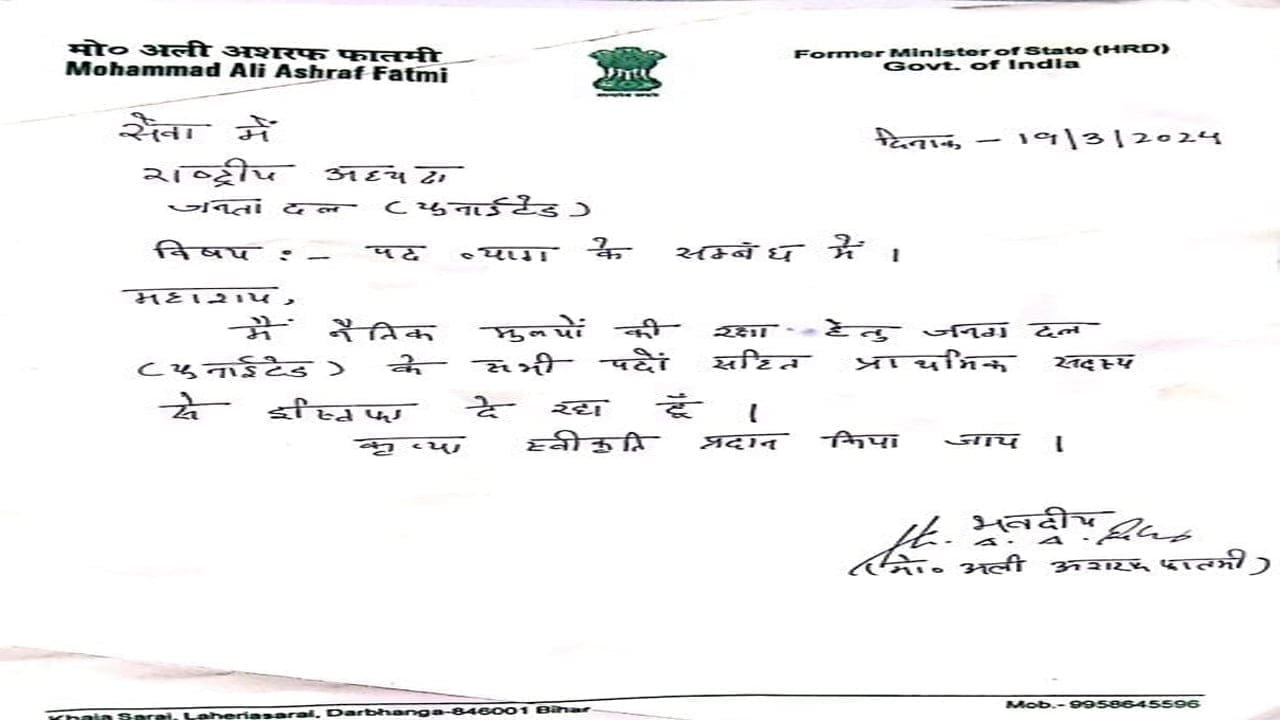 मो० अली अशरफ फातमी
Mohammad Ali Ashraf Fatmi
Former Minister of State (HRD)
Govt. of India
सेवा में
दिनाक - 19/3/2024
राष्ट्रीय अध्यक्ष
जनता दल (युनाईटेड)
विषय :- पद त्याग के सम्बंध में ।
महाशय,
मैं नैतिक मुल्यों की रक्षा हेतु जनता दल
(युनाईटेड) के सभी पदों सहित प्राथमिक सदस्य
से इस्तिफा दे रहा हूँ ।
कृप्या स्वीकृति प्रदान किया जाय ।
भवदीय
(मो० अली अशरफ फातमी)
Khaja Sarai, Laheriasarai, Darbhanga-846001 Bihar
Mob.- 9958645596